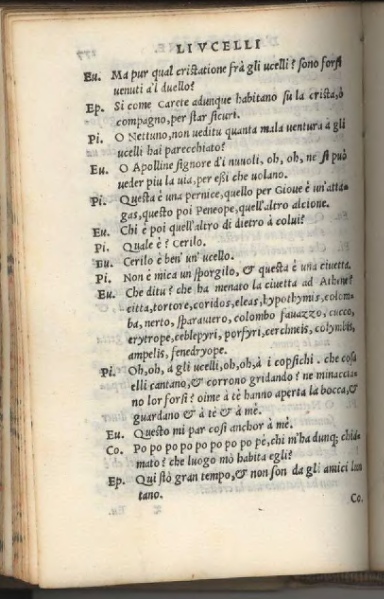 LI VCELLI
Eu. Ma pur qual cristatione frà gli ucelli? sono forsi
uenuti a'l duello?
Ep. Si come Carete adunque habitano su la crista, ò
compagno, per star sicuri.
Pi. O Nettuno, non ueditu quanta mala uentura à gli
ucelli hai parecchiato?
Eu. O Apolline signore d'i nuuoli, oh, oh, ne si può
ueder piu la uia, per eßi che uolano.
Pi. Questa è una pernice, quello per Gioue è un'atta-
gas, questo poi Peneope, quell'altro alcione.
Eu. Chi è poi quell'altro di dietro à colui?
Pi. Quale è? Cerilo.
Eu. Cerilo è ben un' ucello.
Pi. Non è mica un sporgilo, & questa è una ciuetta.
Eu. Che ditu? che ha menato la ciuetta ad Athene?
citta, tortore, coridos, eleas, hypothymis, colom-
ba, nerto, sparauiero, colombo fauazzo, cucco,
erytrope, ceblepyri, porfyri, cerchneis, colymbis,
ampelis, fenedryope.
Pi. Oh, oh, à gli ucelli, oh, oh, à i copsichi. che cosa
elli cantano, & corrono gridando? ne minaccia-
no lor forsi? oime à tè hanno aperta la bocca, &
guardano & à tè & à mè.
Eu. Questo mi par cosi anchor à mè.
Co. Po po po po po po po pe, chi m'ha dunq; chia-
mato? che luogo mò habita egli?
Ep. Qui stò gran tempo, & non son da gli amici lon
tano.
Co.